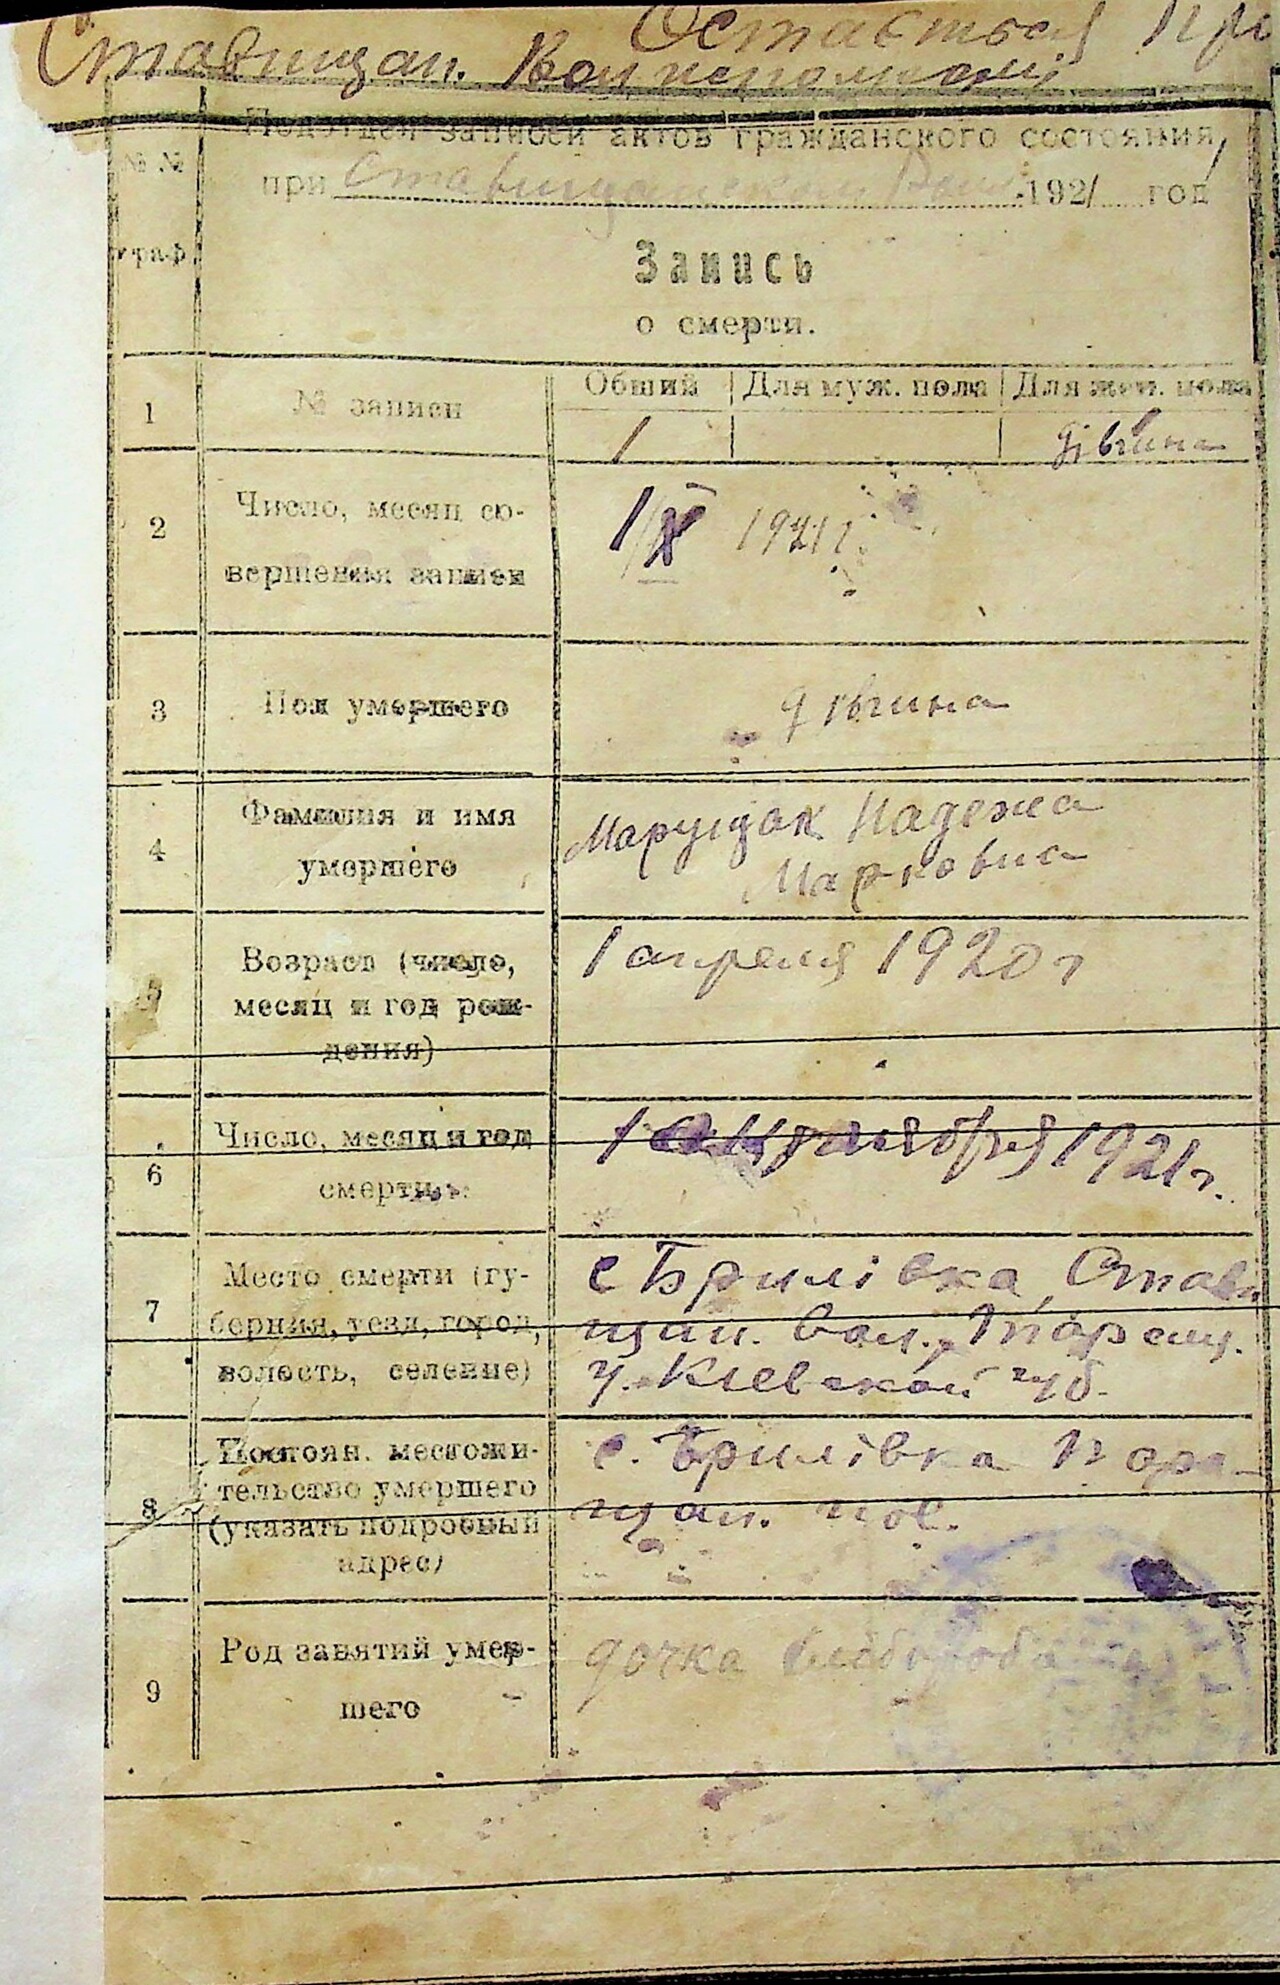 Остається При
Ставищан. Волисполкомі
Подотдел записей актов гражданского состояния
при Ставищанском 1921 год
№№ граф
Запись
о смерти.
1 № записи Общий Для муж. пола Для жен. пола
1 дівчина
2 Число, месяц со-
вершения записи
1/X 1921 г.
3 Пол умершего дівчина
4 Фамилия и имя
умершего
Марущак Надежа
Марковна
5 Возраст (число,
месяц и год рож-
дения)
1 апреля 1920 г
6 Число, месяц и год
смерти
1 1921 г.
7 Место смерти (гу-
берния, уезд, город,
волость, селение)
с Брилівка Стави
щан. вол., Таращ.
у. Киевской губ.
8 Постоян. местожи-
тельство умершего
(указать подробный
адрес)
с. Брилівка Тара-
щан. пов.
9 Род занятий умер-
шего
дочка